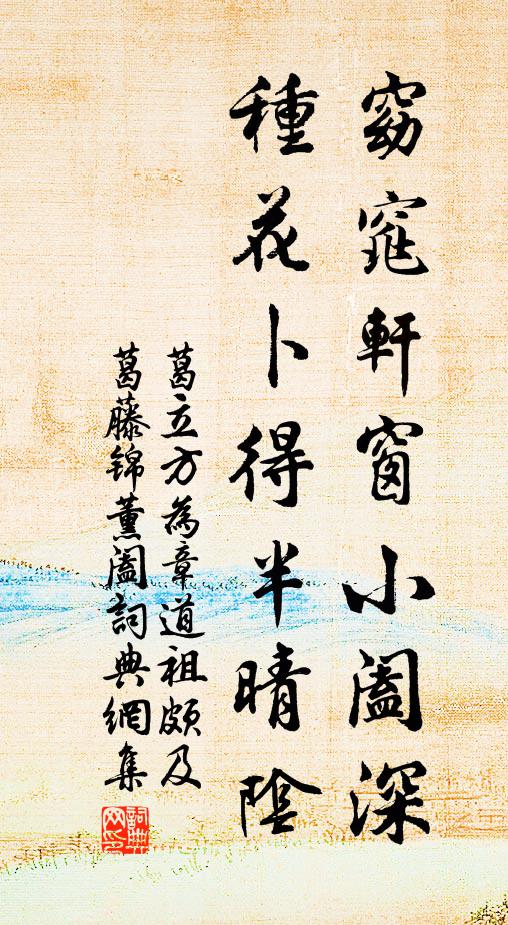 窈窕軒窗小闔深
種花卜得半晴陰
葛立方為章道祖頗及
葛藤錦薰闔詞典網集
詞典网印